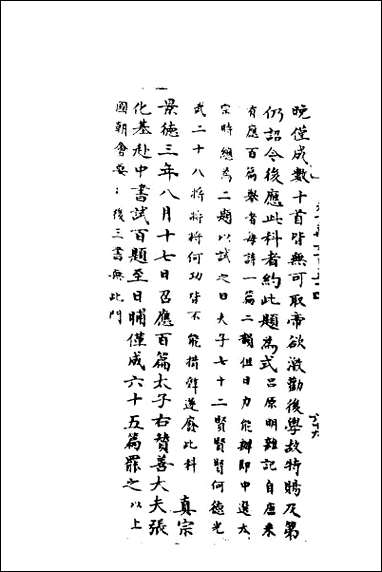 晚僅成數十首皆無可取帝欲激勸後學故特賜及第
仍詔今後應此科者約此題為式呂原明雜記自唐來
有應百篇舉者每詩一篇二韻但日力能辦即中選太
宗時總為二題以試之曰夫子七十二賢賢賢何德光
武二十八將將將何功皆不能措辭遂廢此科　真宗
景德三年八月十七日召應百篇太子右贊善大夫張
化基赴中書試百題至日晡僅成六十五篇罷之以上
國朝會要：後三書無此門